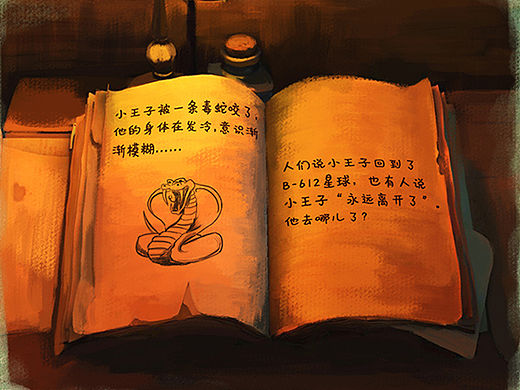 小王子被一条毒蛇咬了，
他的身体在发冷，意识渐
渐模糊……
人们说小王子回到了
B-612星球，也有人说
小王子“永远离开了”。
他去哪儿了？